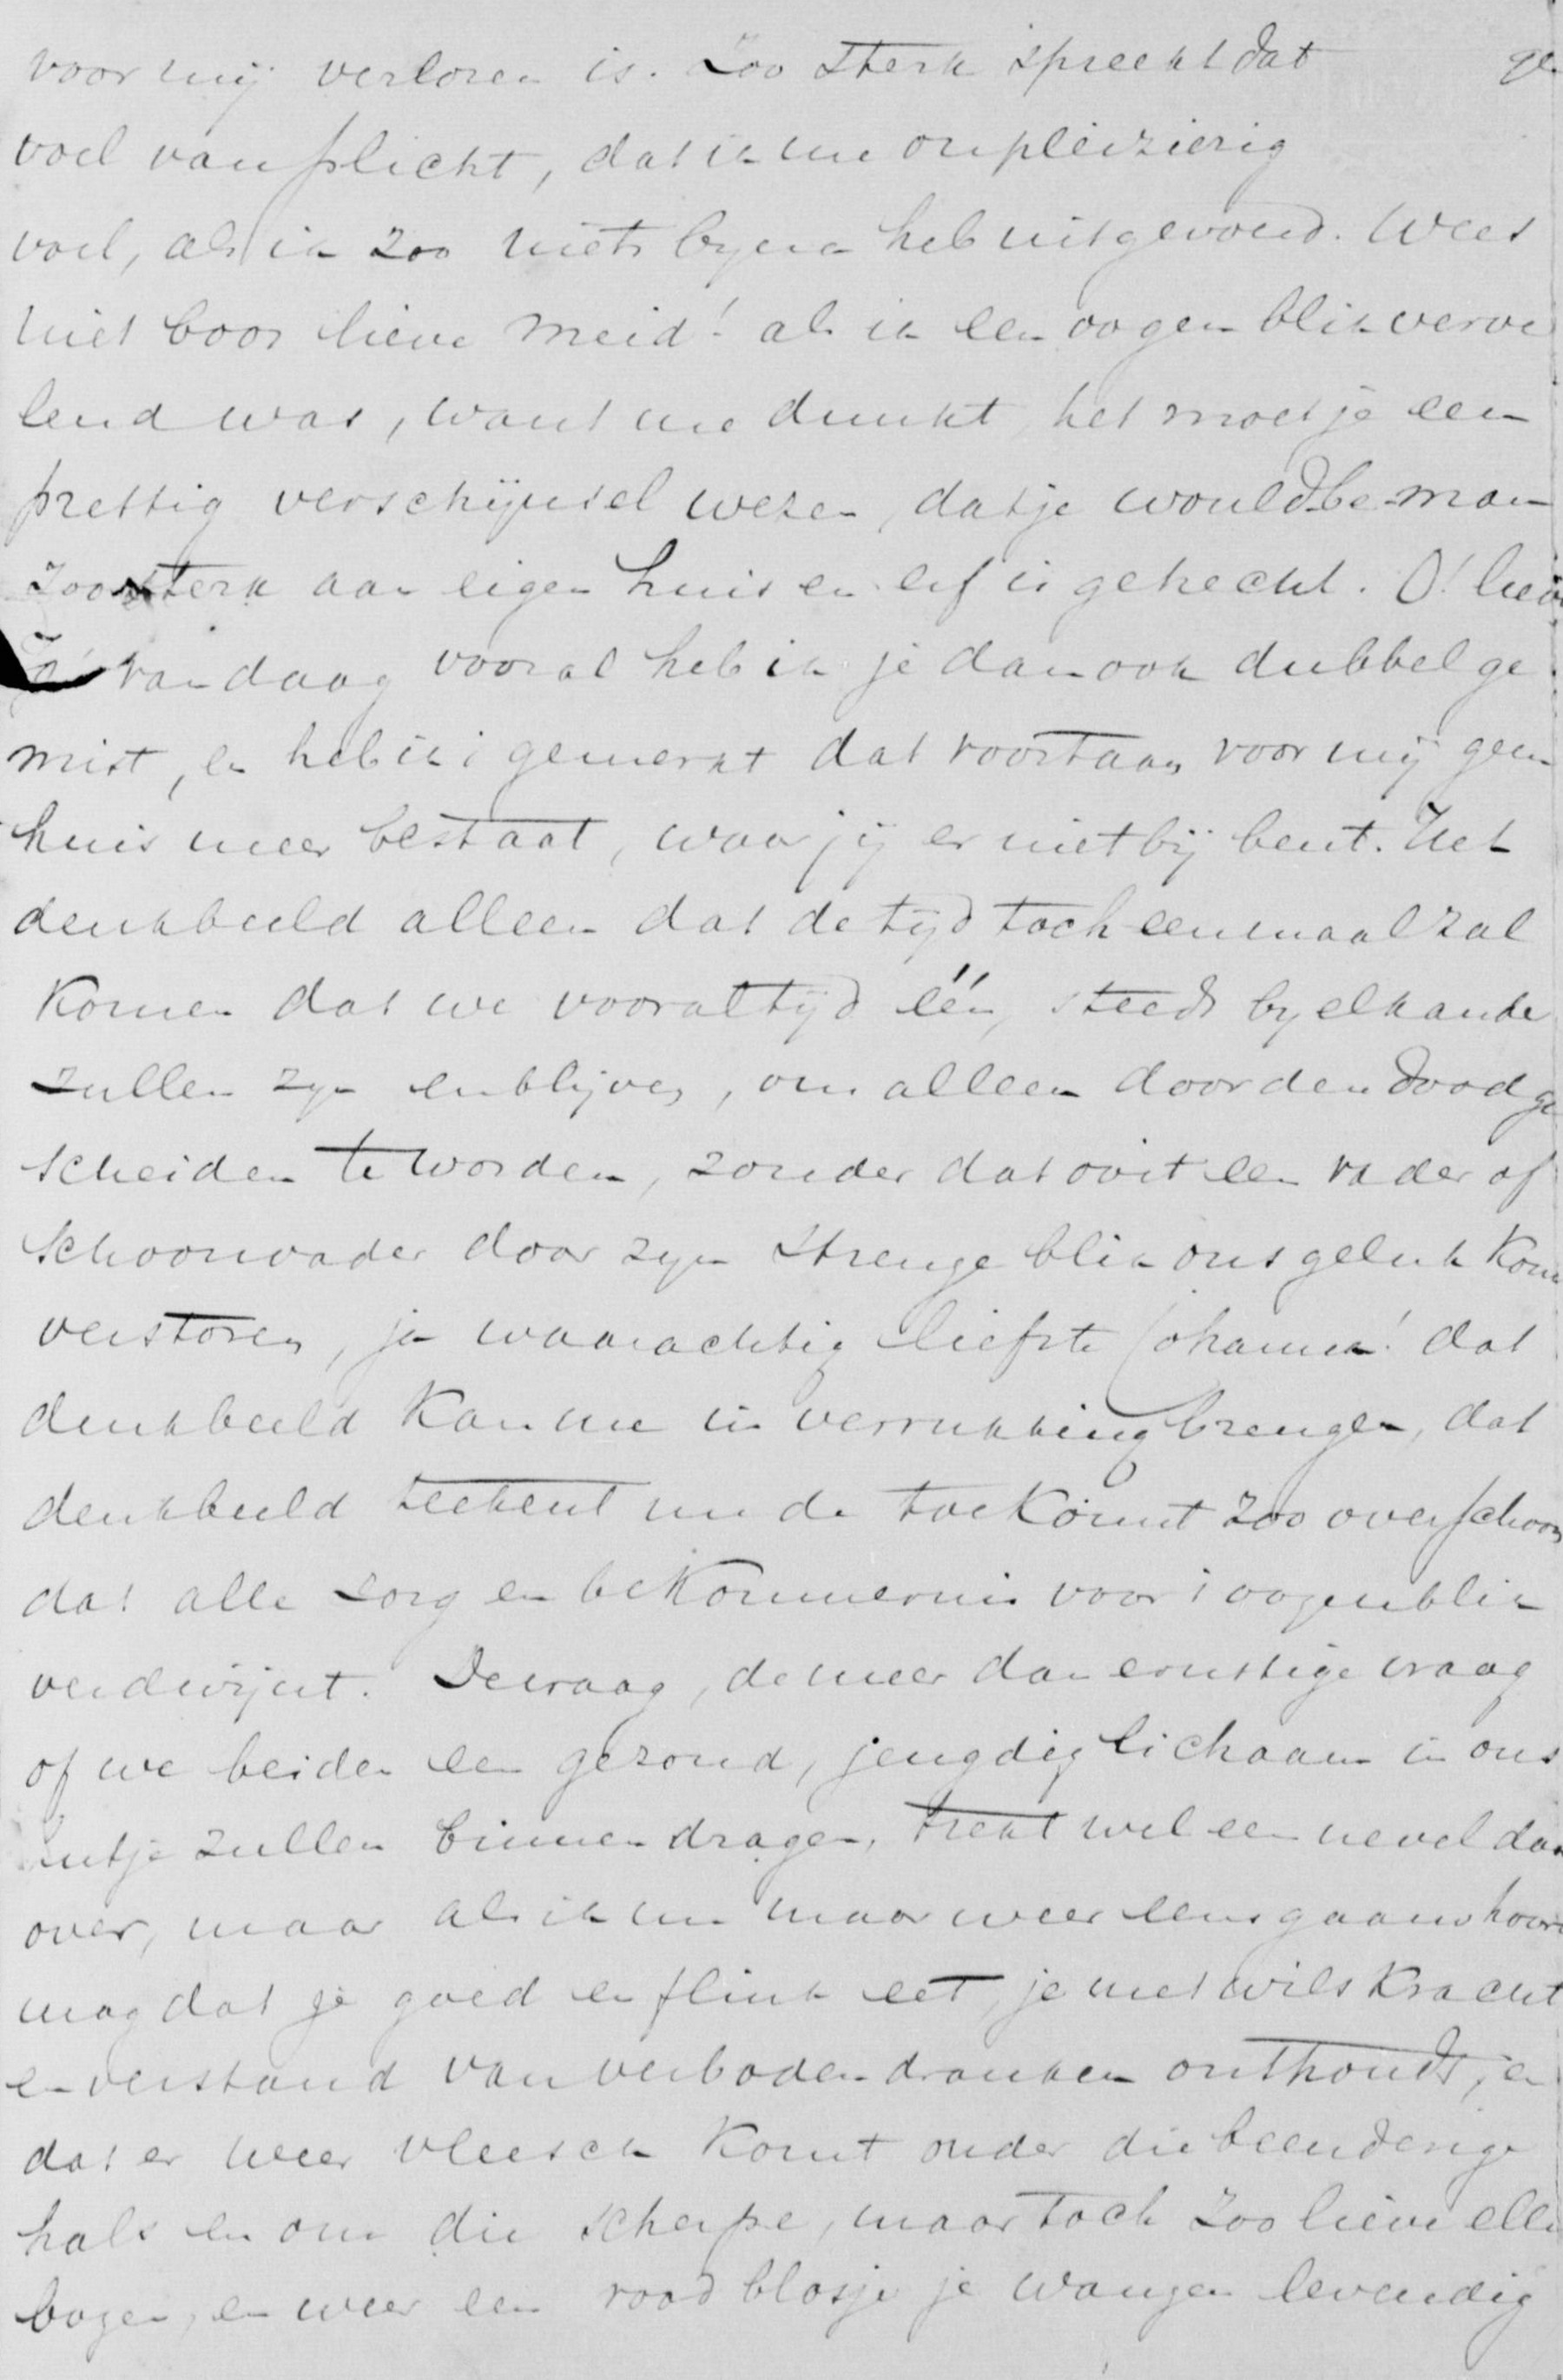 voor mij verloren is. Zoo sterk spreekt dat ge
voel van plicht, dat ik me onpleizierig
voel, als ik zoo niets byna heb uitgevoerd. Wees
niet boos lieve meid! als ik een oogenblik verve
lend was, want me dunkt, het moet je een
prettig verschijnsel wezen, dat je would-be-man
zoo sterk aan eigen huis en erf is gehecht. O! lieve
vandaag vooral heb ik je dan ook dubbel ge
mist, en heb ik gemerkt dat voortaan voor mij geen
huis meer bestaat, waar jij er niet bij bent. Het
denkbeeld alleen dat de tijd toch eenmaal zal
komen dat we voor altijd één, steeds by elkande
zullen zyn en blijven, om alleen door den dood ge
scheiden te worden, zonder dat ooit een vader of
schoonvader door zyn strenge blik ons geluk kom
verstoren, ja waarachtig liefste Johanna! dat
denkbeeld kan me in verrukking brengen, dat
denkbeeld teekent me de toekomst zoo overschoon
dat alle zorg en bekommernis voor 't oogenblik
verdwijnt. De vraag, de meer dan ernstige vraag
of we beiden een gezond, jeugdig lichaam in ons
hutje zullen binnendragen, trekt wel een nevel daar
over, maar als ik nu maar weer eens gaauw hooren
mag dat je goed en flink eet, je met wilskracht
en verstand van verboden dranken onthoudt, en
dat er weer vleesch komt onder die beenderige
hals en om die scherpe, maar toch zoo lieve elle
bogen, en weer een rood blosje je wangen levendig